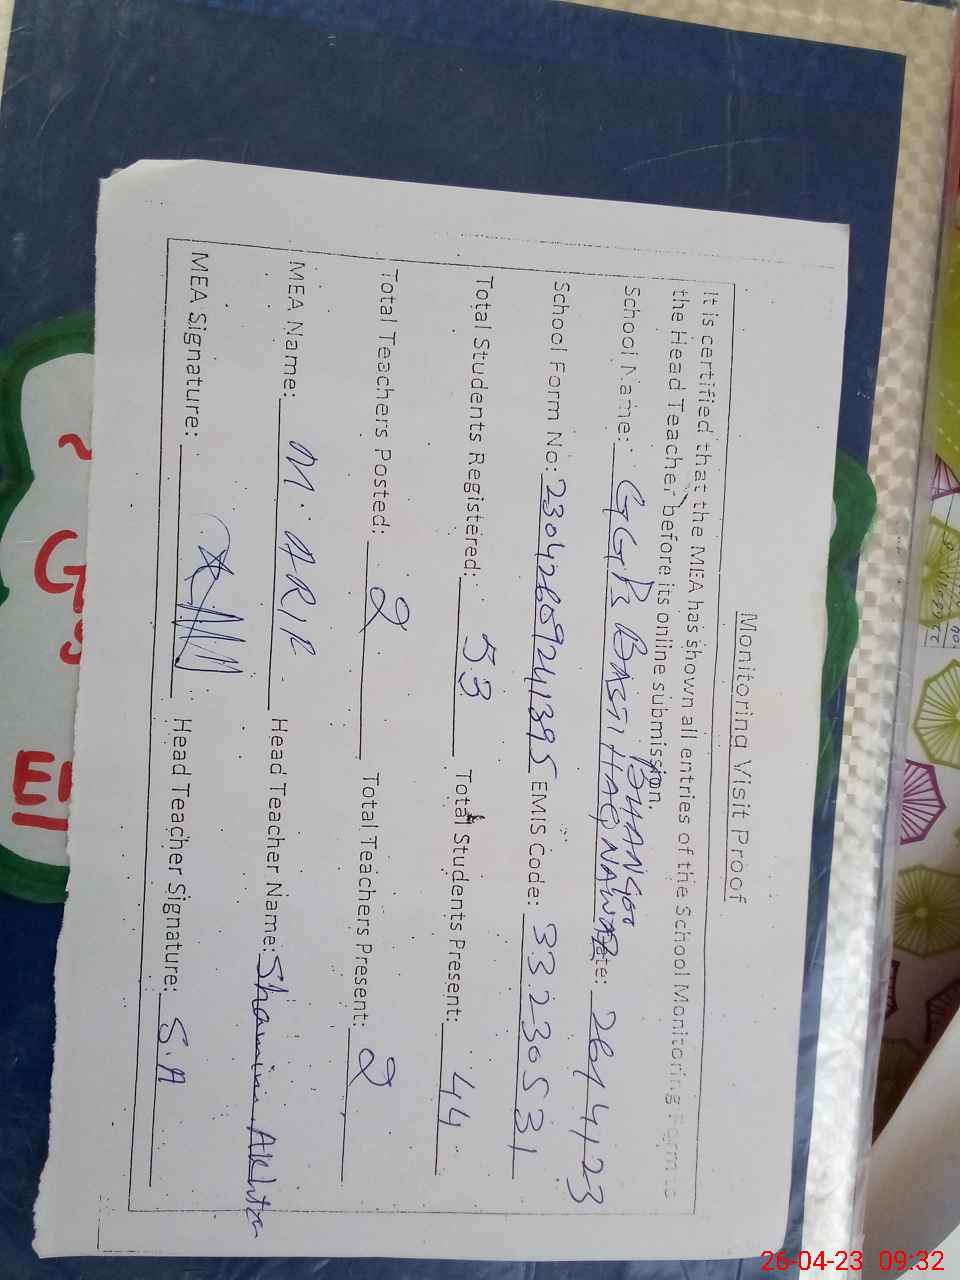 Monitoring Visit Proof
It is certified that the MEA has shown all entries of the School Monitoring Form to
the Head Teacher before its online submission.
BHANGOO
School Name: GGPS BASTI HAQ NAWAZ Date: 26/4/23
School Form No: 230426092411395 EMIS Code: 33230531
Total Students Registered: 53 Total Students Present: 44
Total Teachers Posted: 2 Total Teachers Present: 2
MEA Name: M. ARIF Head Teacher Name: Shamim Akhtar
MEA Signature: Head Teacher Signature: S.A
26-04-23 09:32